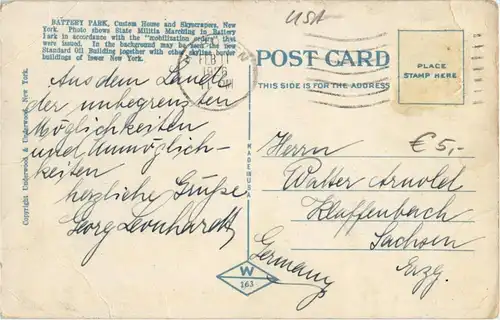 BATTERY PARK, Custom House and Skyscrapers, New
York. Photo shows State Militia Marching in Battery
Park in accordance with the "mobilization orders" that
were issued. In the background may be seen the new
Standard Oil Building together with other skyline border
buildings of lower New York.
Aus dem Lande
der unbegrenzten
Möglichkeiten
und Unmöglich-
keiten
herzliche Grüße
Georg Leonhardt
Copyright Underwood & Underwood, New York.
MADE IN USA
W
163
USA
FEB 11
POST CARD
THIS SIDE IS FOR THE ADDRESS
PLACE
STAMP HERE
€ 5,-
Herrn
Walter Arnold
Klaffenbach
Sachsen
Erzg.
Germany